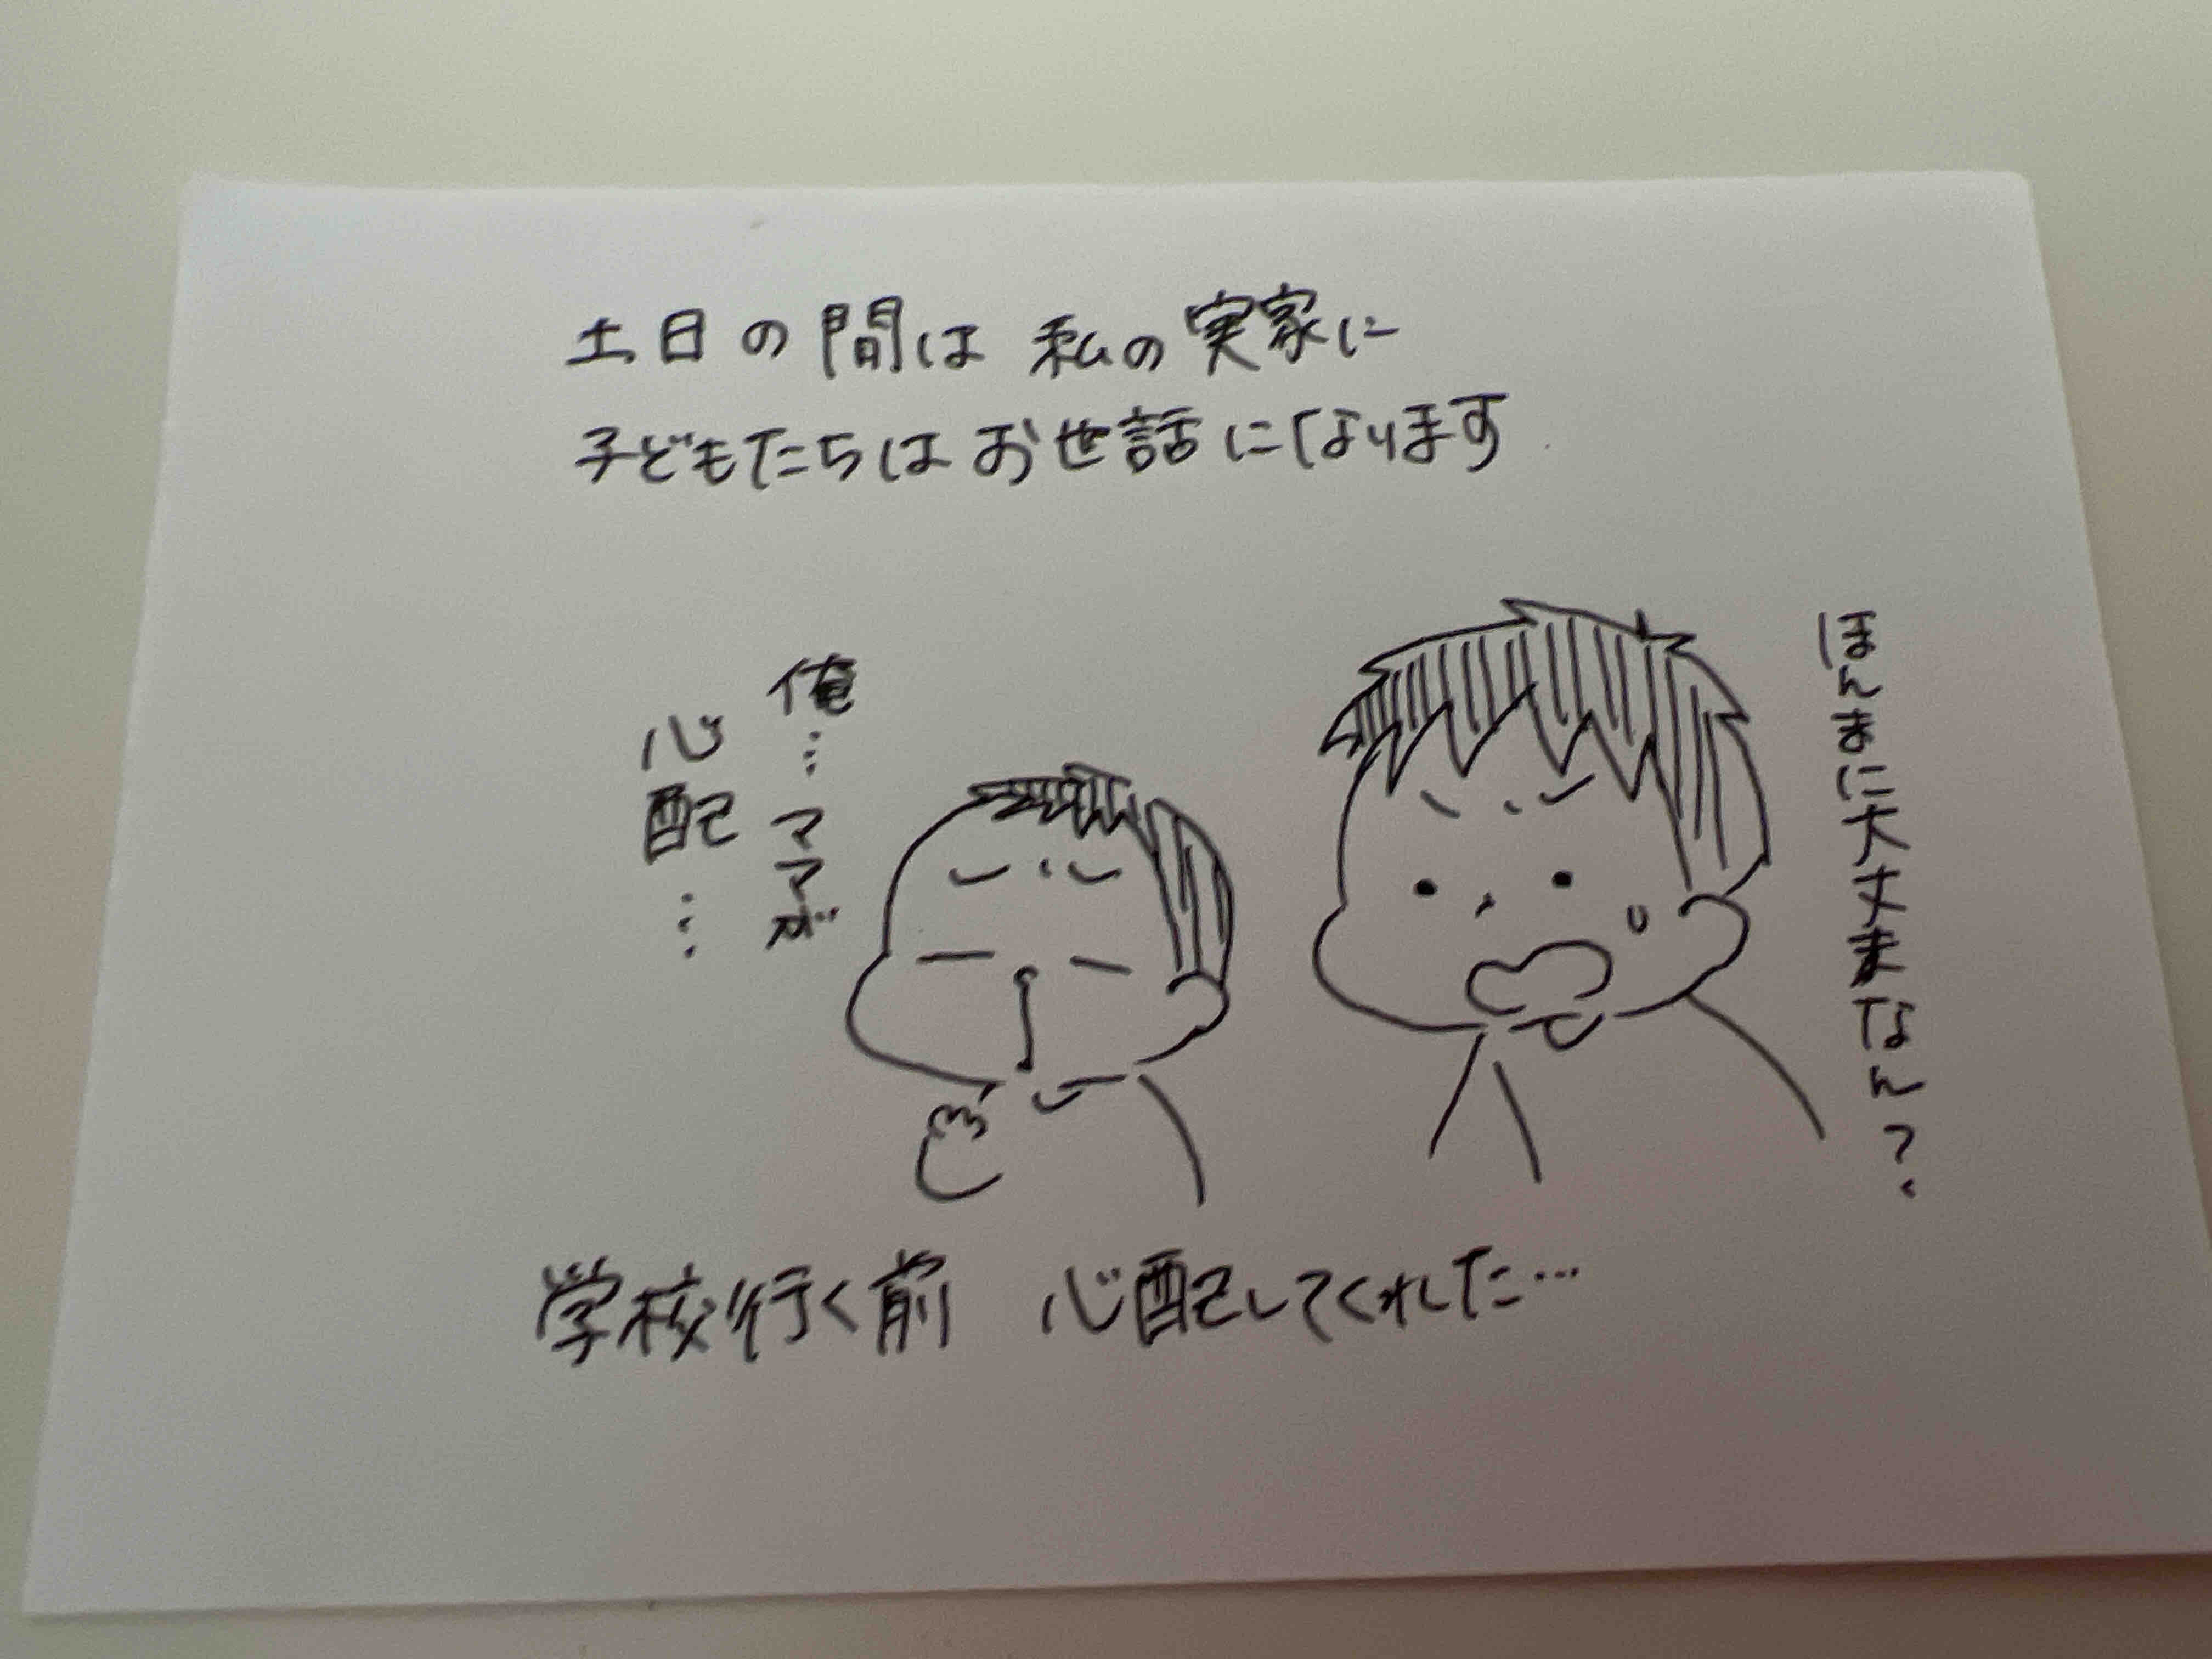 土日の間は 私の実家に
子どもたちは お世話になります
ほんまに大丈夫なん?
俺…ママが
心配…
学校行く前 心配してくれた…